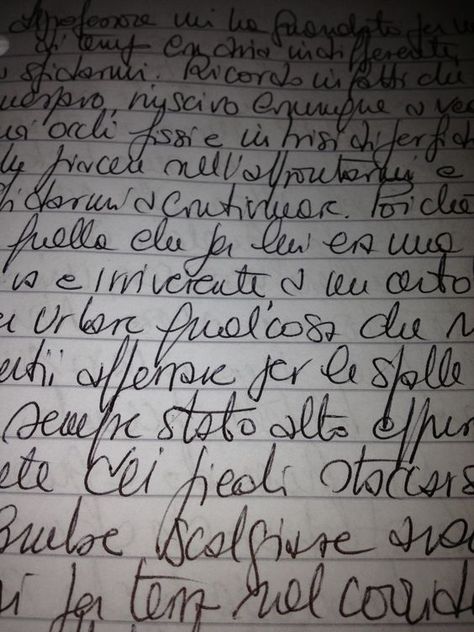 professore mi ha guardato per un
di temp con aria indifferente
sfidarmi. Ricordo infatti che
riuscivo comunque a ve
occhi fissi e intrisi di perfid
piacere nell'affrontarmi e
sfidarmi a continuare. Poiché
quella che per lui era una
va e irriverente a un certo
urlare qualcosa che
afferrare per le spalle
sempre stato alto eppur
dei piedi staccars
scalciare
per temp nel corrid